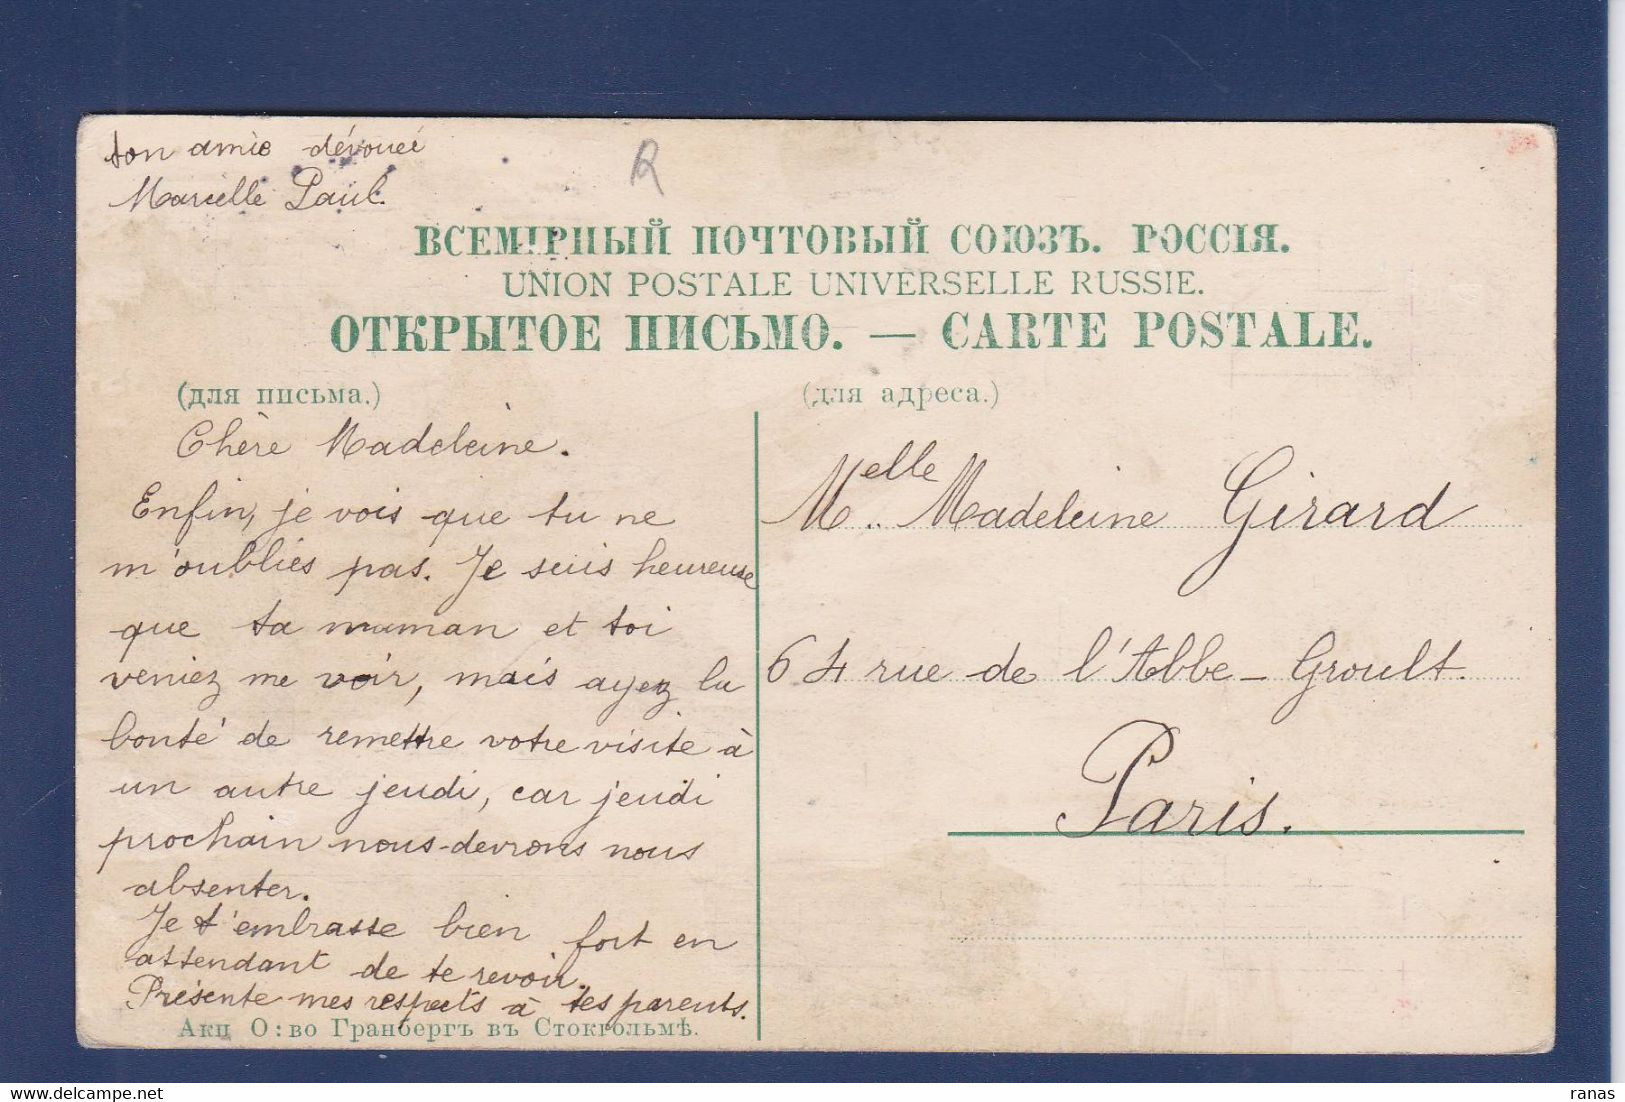 ton amie dévoueé
Marcelle Paul.
R
ВСЕМІРНЫЙ ПОЧТОВЫЙ СОЮЗЪ. РОССІЯ.
UNION POSTALE UNIVERSELLE RUSSIE.
ОТКРЫТОЕ ПИСЬМО. — CARTE POSTALE.
(для письма.)
Chère Madeleine.
Enfin, je vois que tu ne
m'oublies pas. Je suis heureuse
que ta maman et toi
veniez me voir, mais ayez la
bonté de remettre votre visite à
un autre jeudi, car jeudi
prochain nous devrons nous
absenter.
Je t'embrasse bien fort en
attendant de te revoir.
Présente mes respects à tes parents.
Акц О:во Гранбергъ въ Стокгольмѣ.
(для адреса.)
Melle Madeleine Girard
64 rue de l'Abbe-Groult.
Paris.
ranas